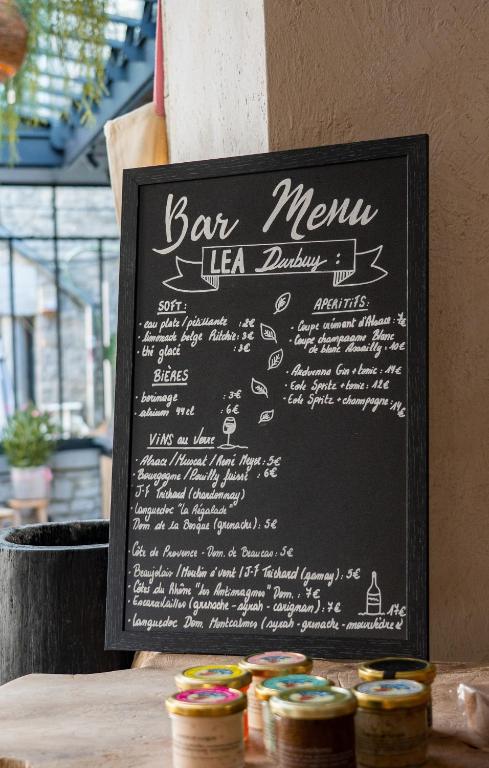 Bar Menu
LEA Durbuy :
SOFT :
- eau plate / pétillante : 2€
- limonade belge Ritchie : 3€
- thé glacé : 3€
BIÈRES
- borinage : 3€
44 cl : 6€
VINS au Verre
- Alsace / Muscat / René Meyer : 5€
- Bourgogne / Pouilly fuissé : 6€
J-F Trichard (chardonnay)
- Languedoc "La Régalade"
Dom. de la Bosque (grenache) : 5€
Côte de Provence - Dom. de Beaucas : 5€
- Beaujolais / Moulin à vent / J-F Trichard (gamay) : 5€
- Côtes du Rhône "les Antimagnes" Dom. : 7€
(grenache - syrah - carignan) : 7€
- Languedoc Dom. Montcalmès (syrah - grenache - mourvèdre) 17€
APERITIFS :
- Coupe crémant d'Alsace : 7€
- Coupe champagne Blanc
de blanc : 10€
- Arduenna Gin + tonic : 14€
- Eole Spritz + tonic : 12€
- Eole Spritz + champagne : 14€